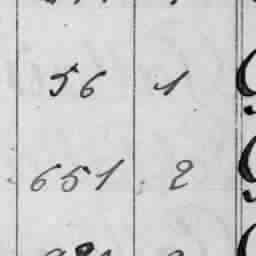 56 1
651 2